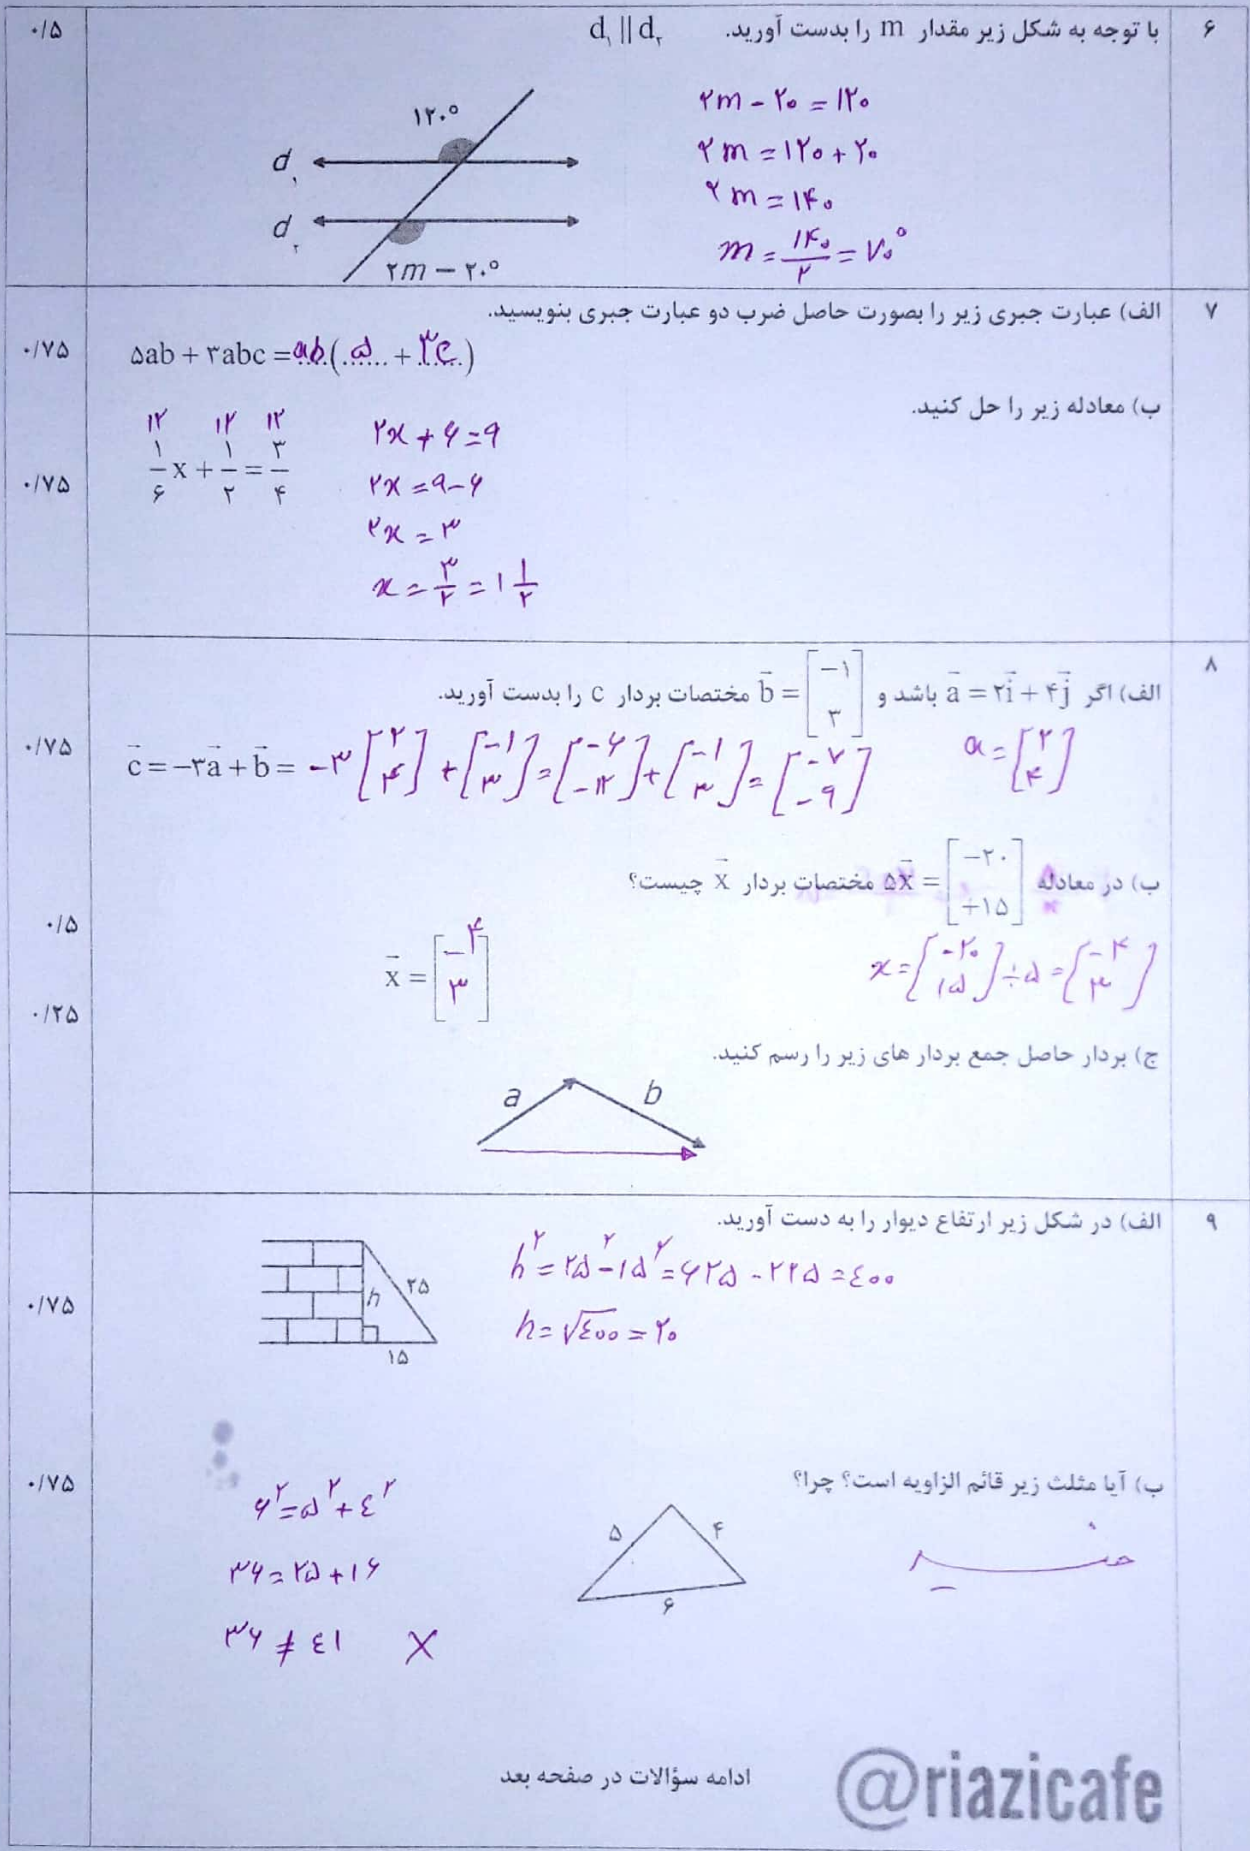 ۶ با توجه به شکل زیر مقدار m را بدست آورید. d₁ || d₂ ۰/۵
۱۲۰°
d₁
d₂
۲m − ۲۰°
۲m − ۲۰ = ۱۲۰
۲m = ۱۲۰ + ۲۰
۲m = ۱۴۰
m = ۱۴۰/۲ = ۷۰°
۷ الف) عبارت جبری زیر را بصورت حاصل ضرب دو عبارت جبری بنویسید.
۵ab + ۳abc = ab(۵ + ۳c) ۰/۷۵
ب) معادله زیر را حل کنید.
۱۲ ۱۲ ۱۲
۱/۶ x + ۱/۲ = ۳/۴ ۰/۷۵
۲x + ۶ = ۹
۲x = ۹ − ۶
۲x = ۳
x = ۳/۲ = ۱ ۱/۲
۸ الف) اگر a = ۲i + ۴j باشد و b = [−۱ ۳] مختصات بردار c را بدست آورید.
a = [۲ ۴]
c = −۳a + b = −۳[۲ ۴] + [−۱ ۳] = [−۶ −۱۲] + [−۱ ۳] = [−۷ −۹] ۰/۷۵
ب) در معادله [−۲۰ +۱۵] = ۵x مختصات بردار x چیست؟
x = [−۲۰ ۱۵] ÷ ۵ = [−۴ ۳]
x = [−۴ ۳] ۰/۵
۰/۲۵
ج) بردار حاصل جمع بردار های زیر را رسم کنید.
a b
۹ الف) در شکل زیر ارتفاع دیوار را به دست آورید.
h ۲۵
۱۵
h² = ۲۵² − ۱۵² = ۶۲۵ − ۲۲۵ = ٤۰۰
h = √٤۰۰ = ۲۰
۰/۷۵
ب) آیا مثلث زیر قائم الزاویه است؟ چرا؟ ۰/۷۵
۵ ۴
۶
خیر
۶² = ۵² + ٤²
۳۶ = ۲۵ + ۱۶
۳۶ ≠ ٤۱ X
ادامه سؤالات در صفحه بعد
@riazicafe